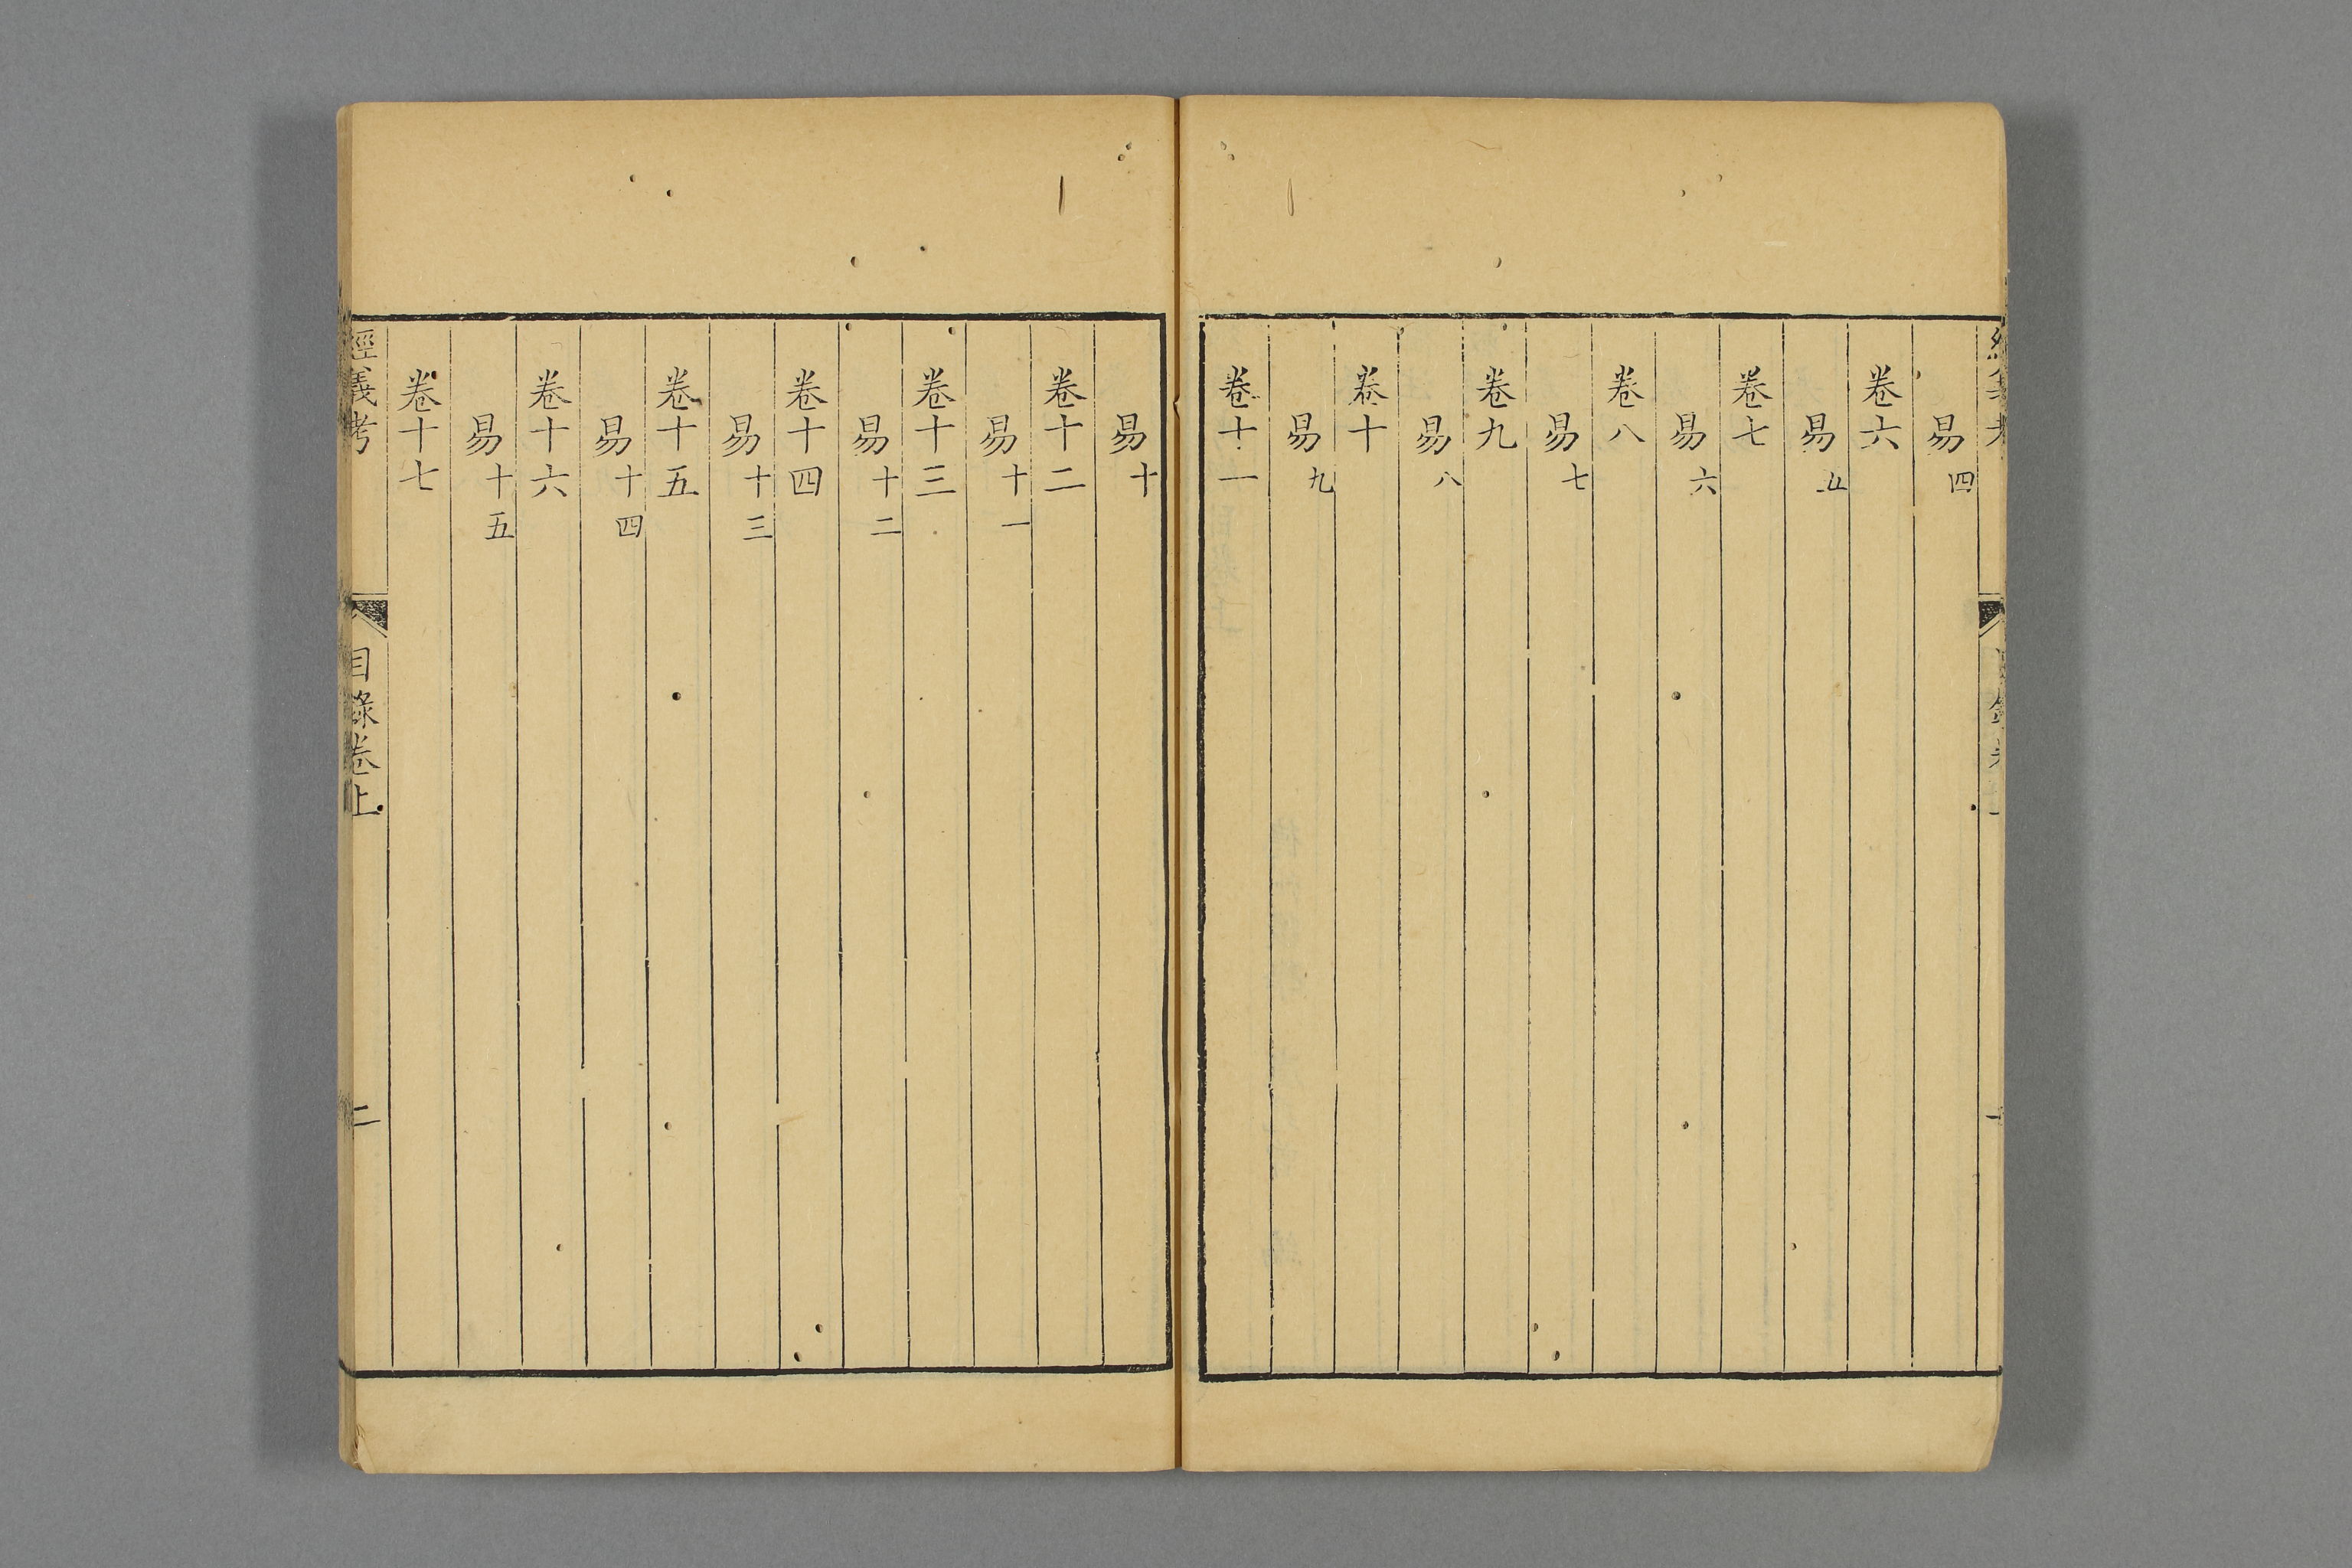 易四
卷六
易五
卷七
易六
卷八
易七
卷九
易八
卷十
易九
卷十一
易十
卷十二
易十一
卷十三
易十二
卷十四
易十三
卷十五
易十四
卷十六
易十五
卷十七
經義考
目錄卷上
二